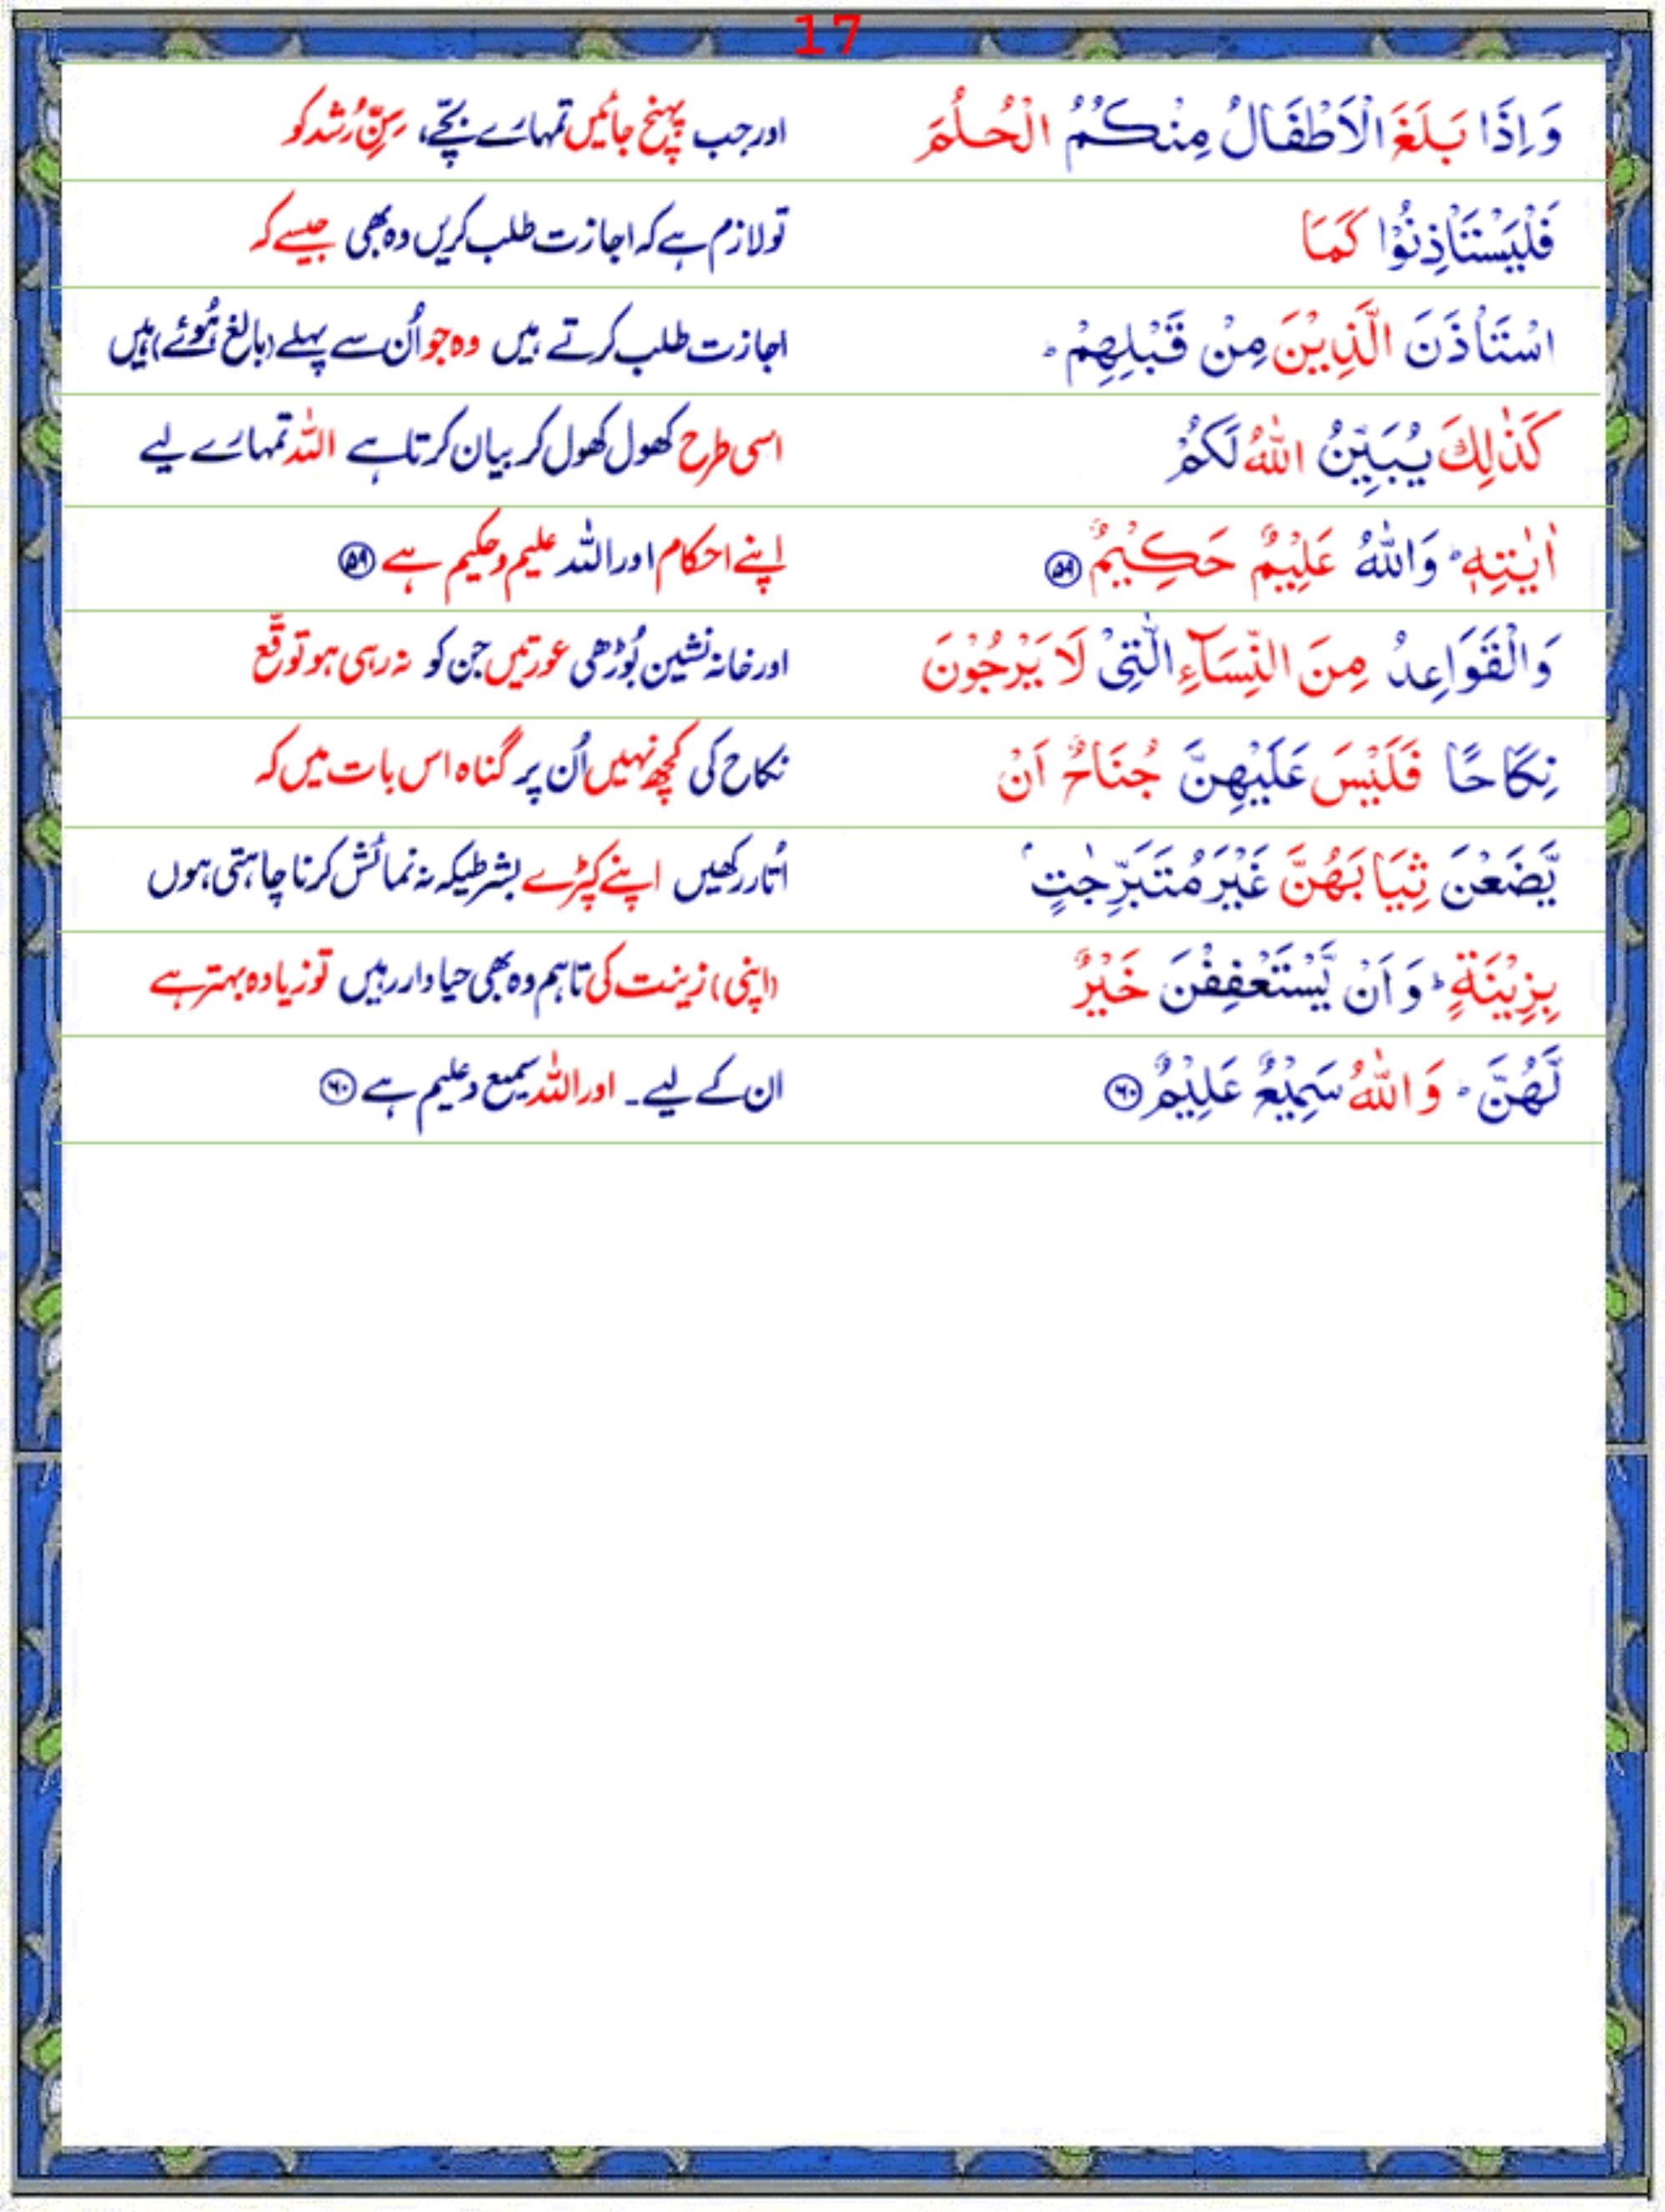 17
وَاِذَا بَلَغَ الْاَطْفَالُ مِنْكُمُ الْحُلُمَ اور جب پہنچ جائیں تمہارے بچّے، سِنِّ رُشد کو
فَلْيَسْتَاْذِنُوْا كَمَا تو لازم ہے کہ اجازت طلب کریں وہ بھی جیسے کہ
اسْتَاْذَنَ الَّذِيْنَ مِنْ قَبْلِهِمْ ؕ اجازت طلب کرتے ہیں وہ جو اُن سے پہلے (بالغ ہُوئے) ہیں
كَذٰلِكَ يُبَيِّنُ اللّٰهُ لَكُمْ اسی طرح کھول کھول کر بیان کرتا ہے اللہ تمہارے لیے
اٰيٰتِهٖ ؕ وَاللّٰهُ عَلِيْمٌ حَكِيْمٌ ﴿۵۹﴾ اپنے احکام اور اللہ علیم و حکیم ہے ﴿۵۹﴾
وَالْقَوَاعِدُ مِنَ النِّسَآءِ الّٰتِىْ لَا يَرْجُوْنَ اور خانہ نشین بُوڑھی عورتیں جن کو نہ رہی ہو توقّع
نِكَاحًا فَلَيْسَ عَلَيْهِنَّ جُنَاحٌ اَنْ نکاح کی کُچھ نہیں اُن پر گناہ اس بات میں کہ
يَّضَعْنَ ثِيَابَهُنَّ غَيْرَ مُتَبَرِّجٰتٍۭ اُتار رکھیں اپنے کپڑے بشرطیکہ نہ نمائش کرنا چاہتی ہوں
بِزِيْنَةٍ ؕ وَاَنْ يَّسْتَعْفِفْنَ خَيْرٌ (اپنی) زینت کی تاہم وہ بھی حیادار رہیں تو زیادہ بہتر ہے
لَّهُنَّ ؕ وَاللّٰهُ سَمِيْعٌ عَلِيْمٌ ﴿۶۰﴾ ان کے لیے۔ اور اللہ سمیع و علیم ہے ﴿۶۰﴾